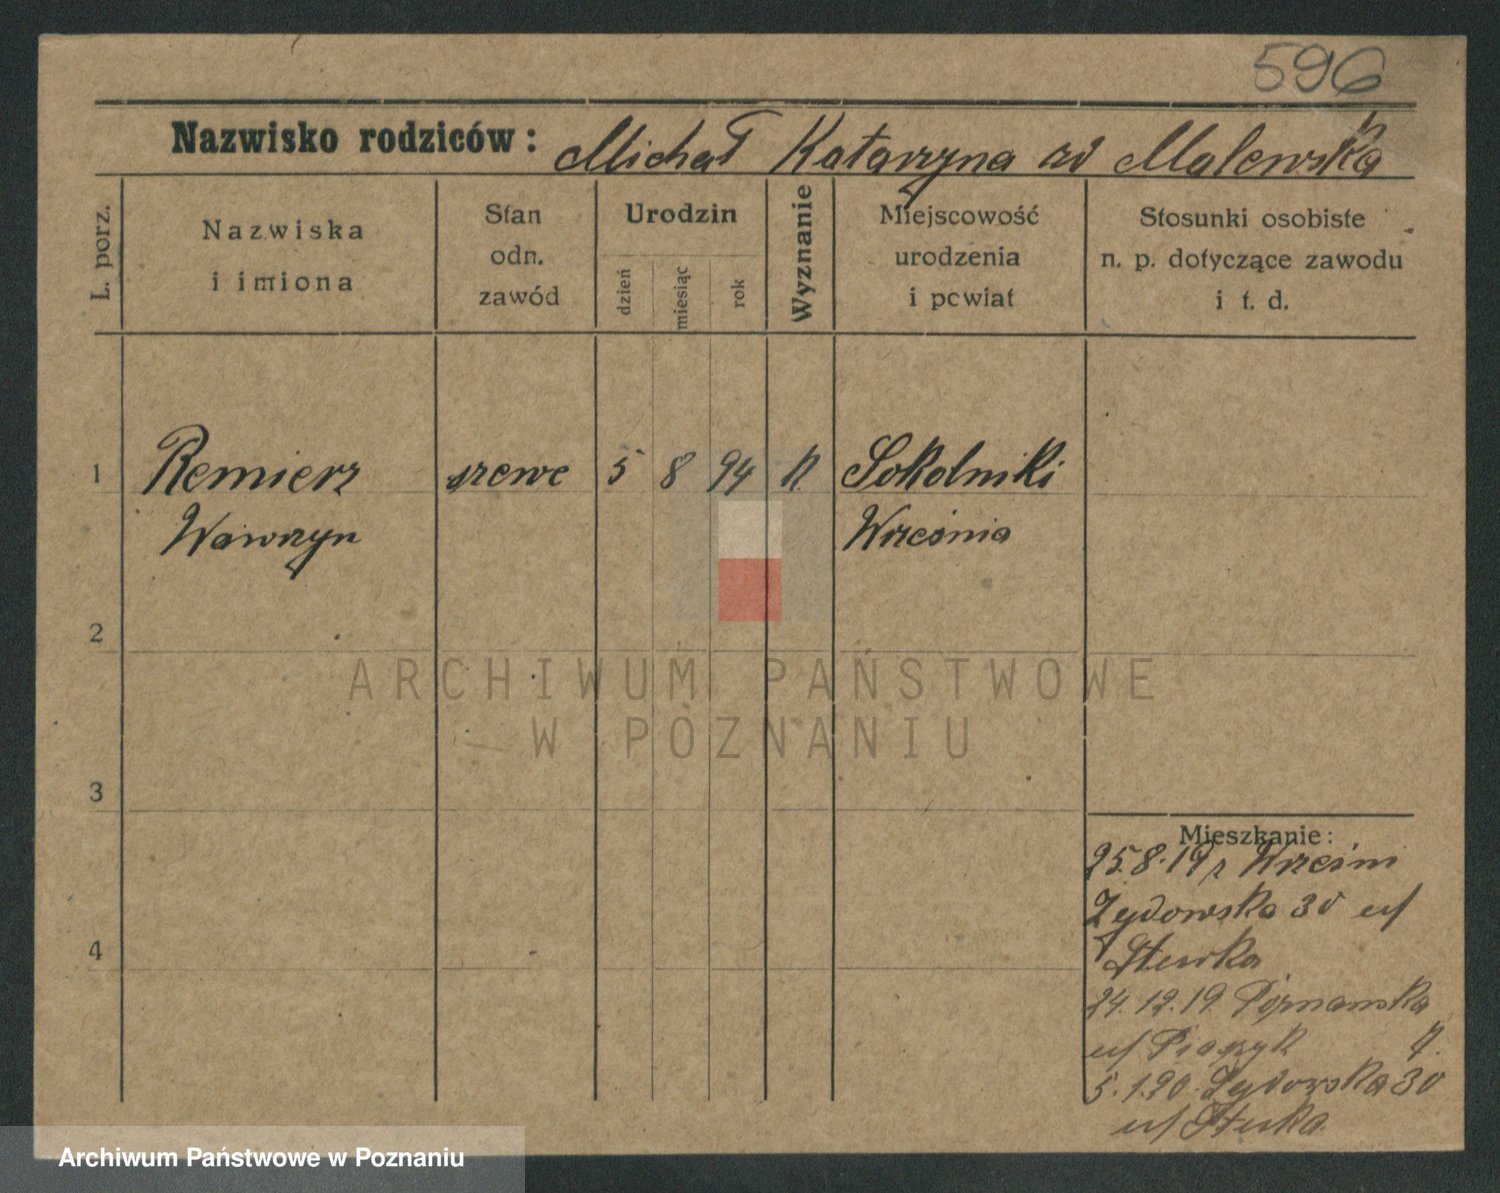 596
Nazwisko rodziców: Michał Katarzyna zd Malewska
L. porz.
Nazwiska
i imiona
Stan
odn.
zawód
Urodzin
dzień
miesiąc
rok
Wyznanie
Miejscowość
urodzenia
i powiat
Stosunki osobiste
n. p. dotyczące zawodu
i t. d.
1 Remierz szewc 5 8 94 k. Sokolniki
Wawrzyn Września
2
3
4
ARCHIWUM PAŃSTWOWE
W POZNANIU
Mieszkanie:
25.8.19 r Wrześni
Żydowska 30 u/
24.12.19. Poznanska
u/ 7.
5.1.20. Żydowska 30
u/
Archiwum Państwowe w Poznaniu